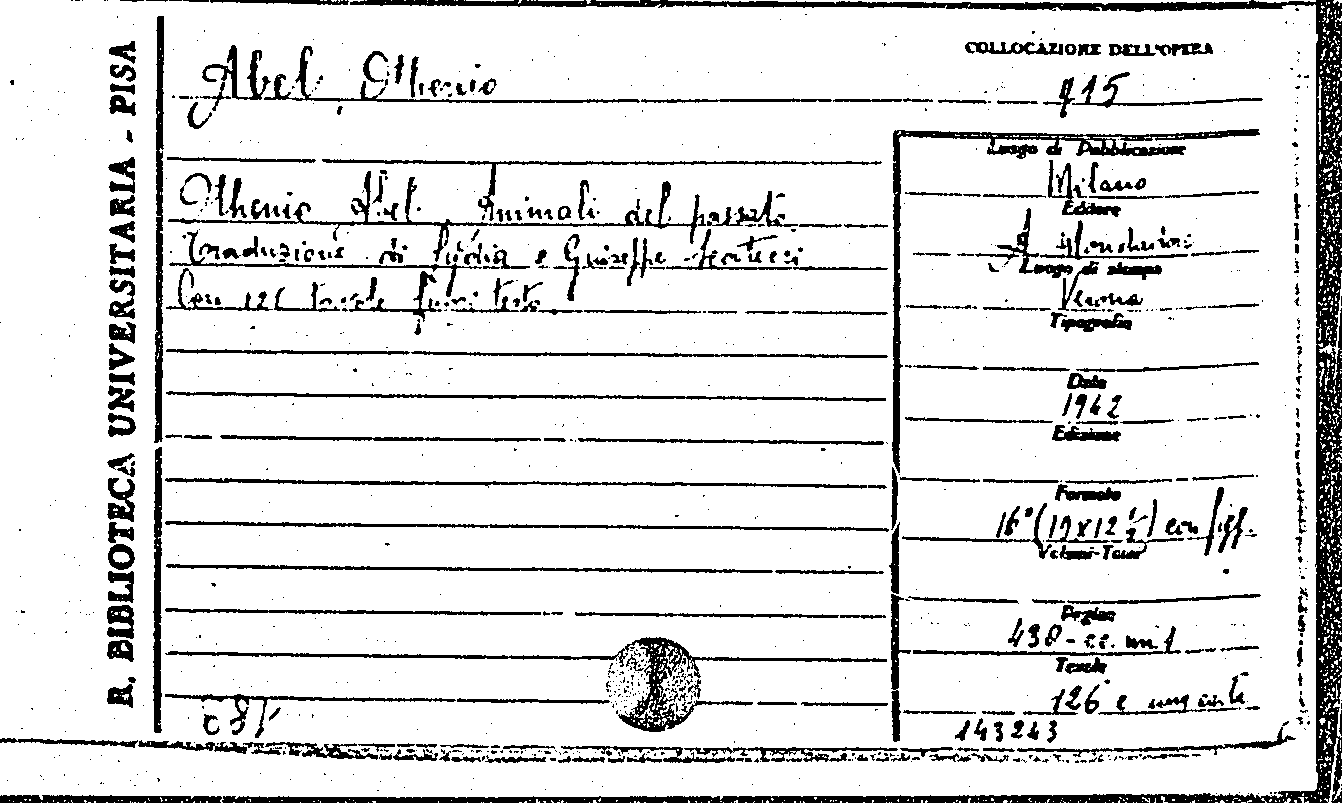 R. BIBLIOTECA UNIVERSITARIA - PISA
Abel, Othenio
COLLOCAZIONE DELL'OPERA
q 15
Othenio Abel. Animali del passato.
Traduzione di Lydia e Giuseppe Scortecci
Con 126 tavole fuori testo.
Luogo di Pubblicazione
Milano
Editore
A. Mondadori
Luogo di stampa
Verona
Tipografia
Data
1942
Edizione
Formato
16° (19 x 12 ½) con figg.
Volumi-Tomi
Pagine
438 - cc. nn. 1
Tavole
126 e una carta
143243